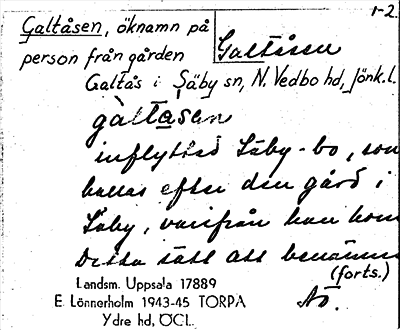 1-2.
Galtåsen, öknamn på
person från gården
Galtåsen
Galtås i Säby sn, N. Vedbo hd, Jönk.l.
gàltasen
inflyttad Säby-bo, som
kallas efter den gård i
Säby, varifrån han kom
Detta sätt att benämna
(forts.)
Landsm. Uppsala 17889
E. Lönnerholm 1943-45 TORPA
Ydre hd, ÖGL.